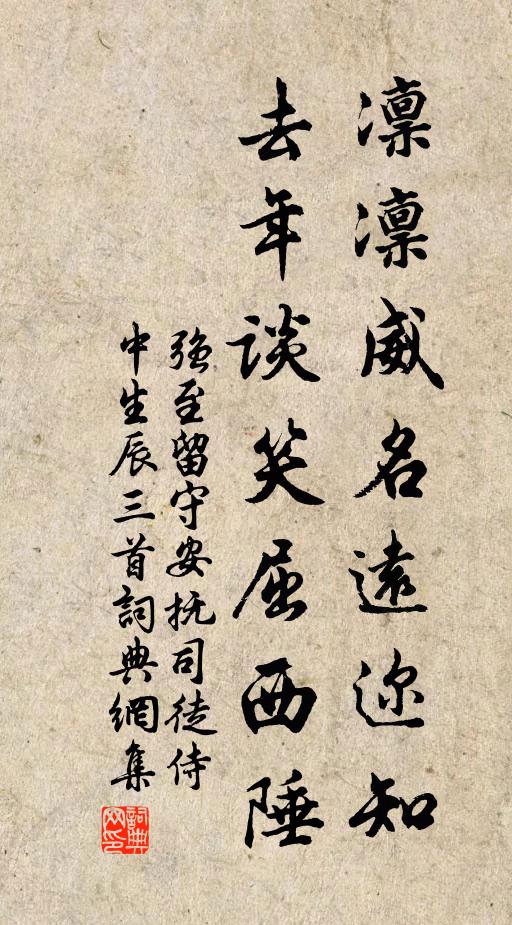 凛凛威名遠迩知
去年談笑屈西陲
強至留守安抚司徒侍
中生辰三首詞典網集
詞典网印